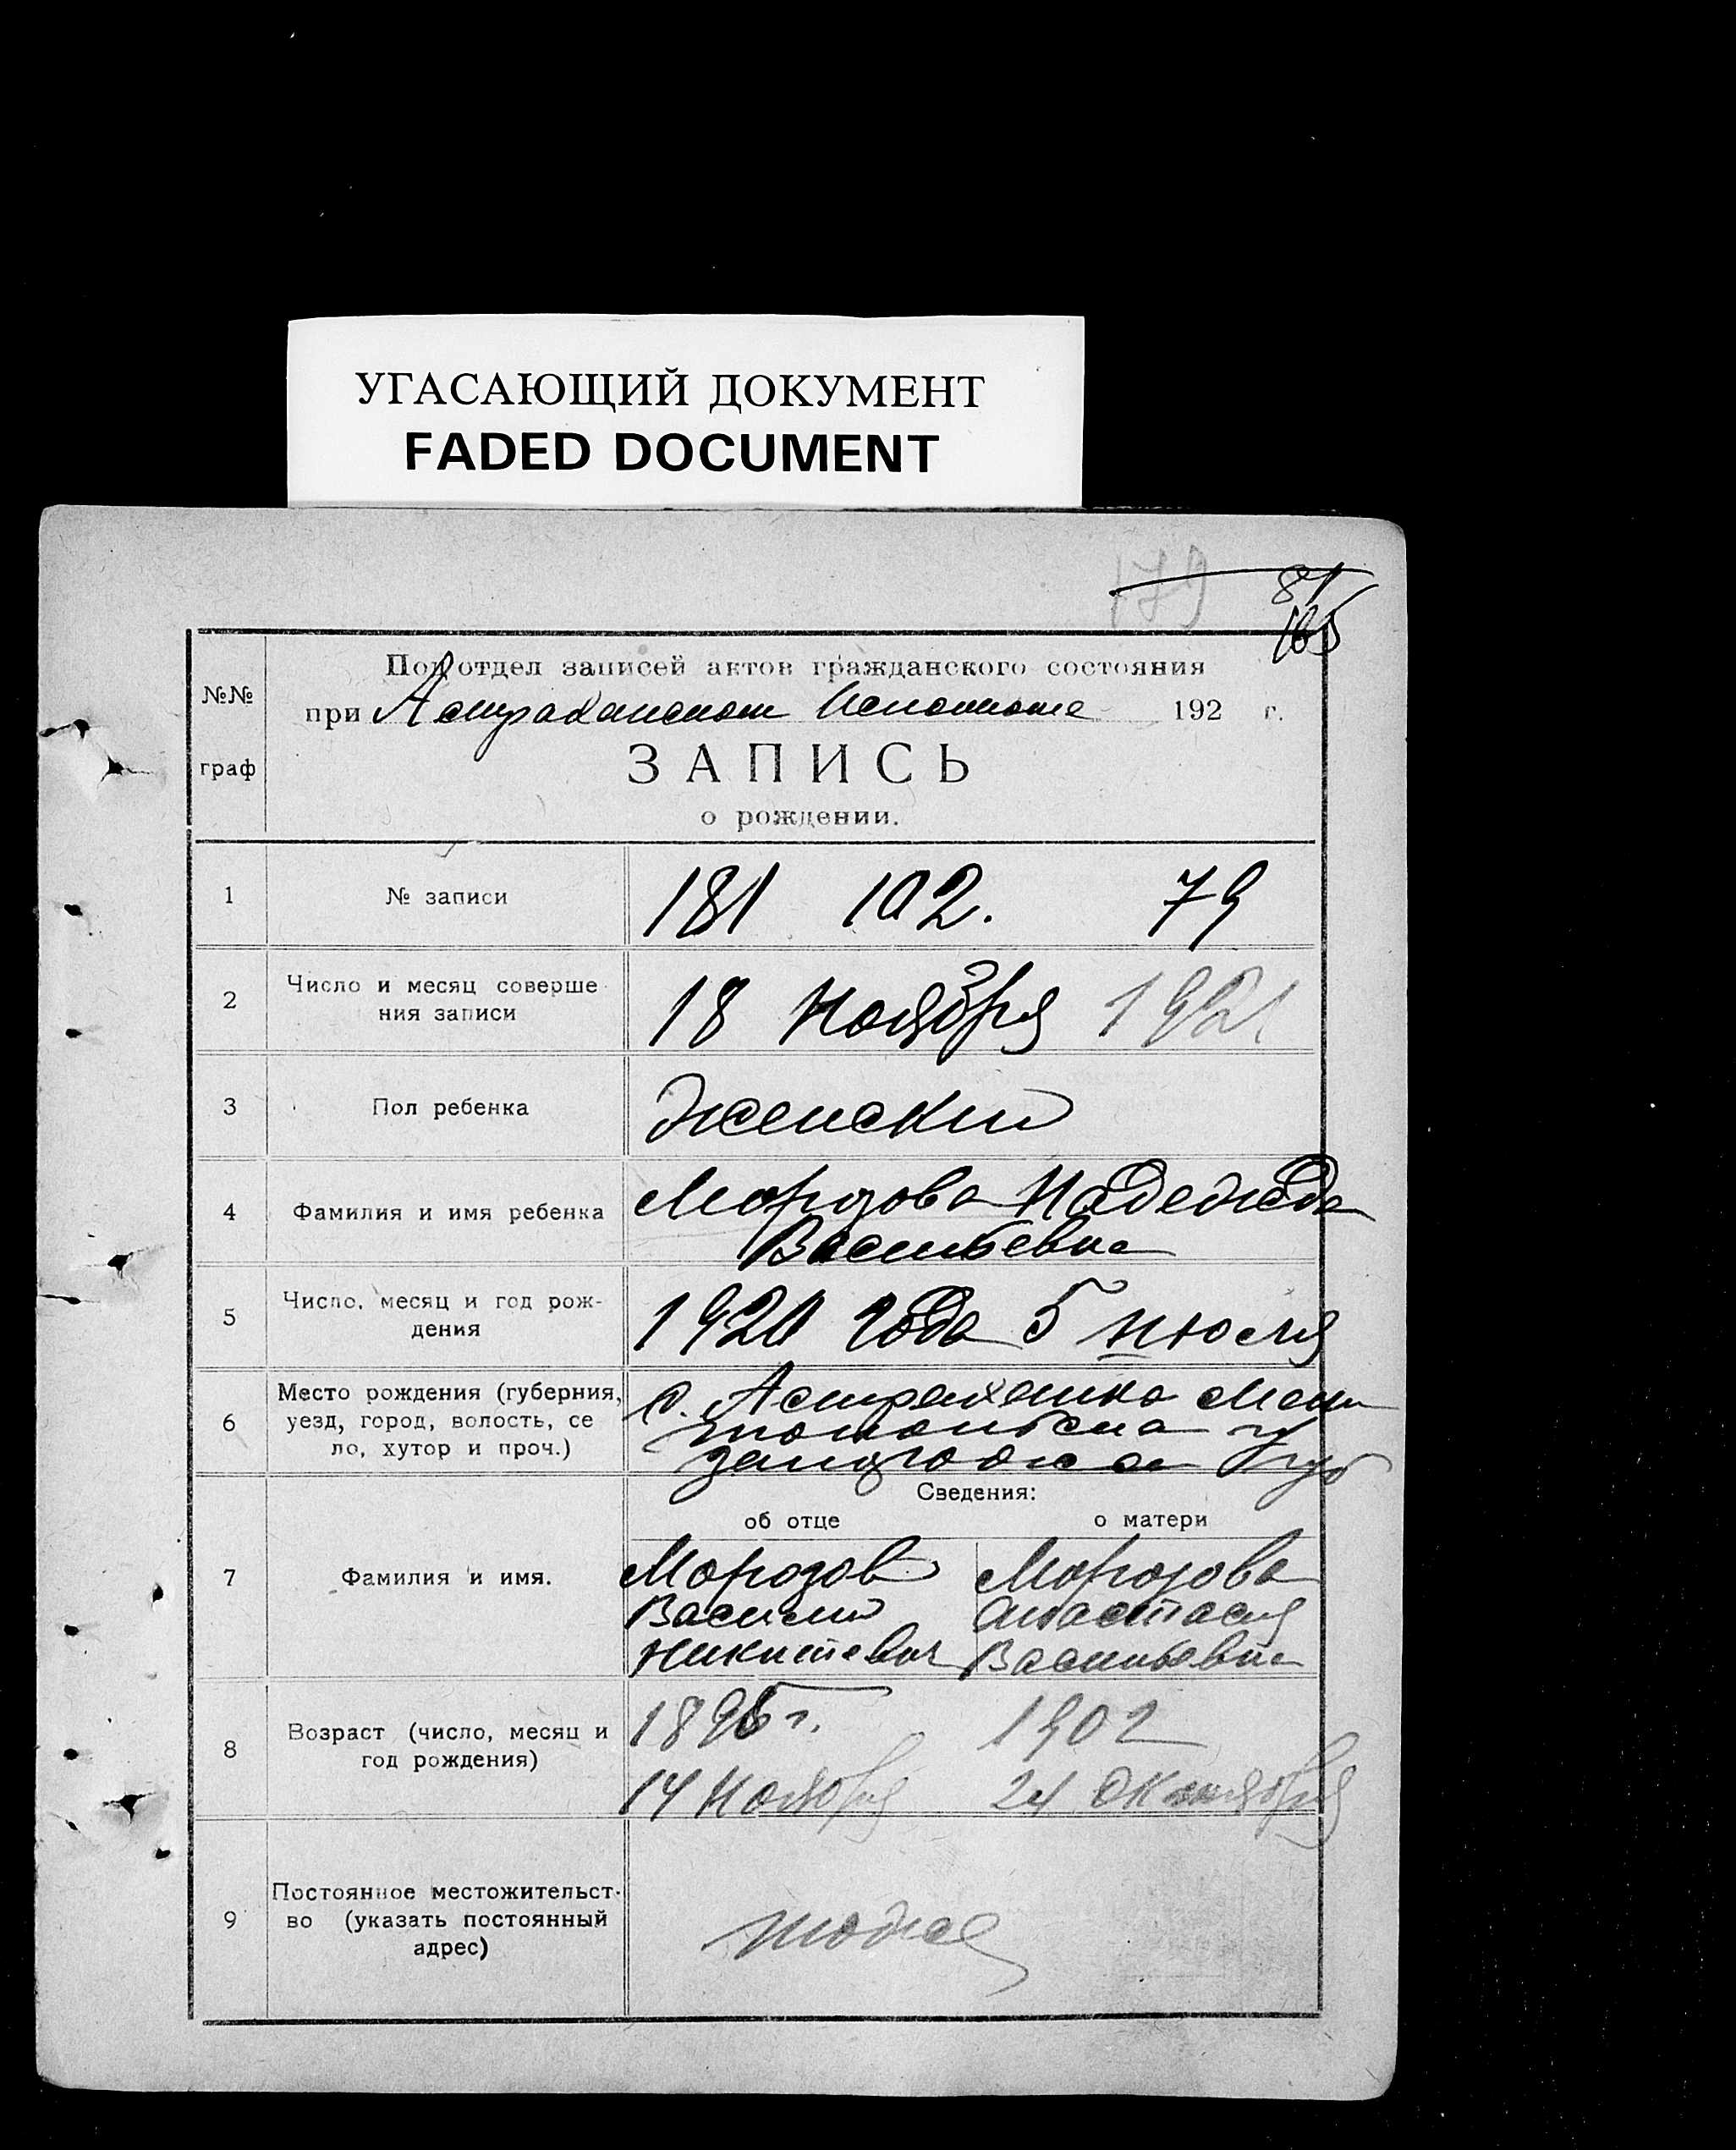 УГАСАЮЩИЙ ДОКУМЕНТ
FADED DOCUMENT
179
81
165
Подотдел записей актов гражданского состояния
№№
при Астраханском Исполкоме 192 г.
граф
ЗАПИСЬ
о рождении.
1 № записи 181 102. 79
2 Число и месяц соверше- 18 Ноября 1921
ния записи
3 Пол ребенка Женский
4 Фамилия и имя ребенка Морозова Надежда
Васильевна
5 Число, месяц и год рож- года 5 июля
дения
6 Место рождения (губерния, с. Астраханка Мели
уезд, город, волость, се топольска у
ло, хутор и проч.) губ
Сведения:
об отце о матери
7 Фамилия и имя. Морозов Морозова
Василий Анастасия
Никитевич Васильевна
8 Возраст (число, месяц и г. 1902
год рождения) 14 Ноября 24 Октября
9 Постоянное местожительст-
во (указать постоянный тоже
адрес)